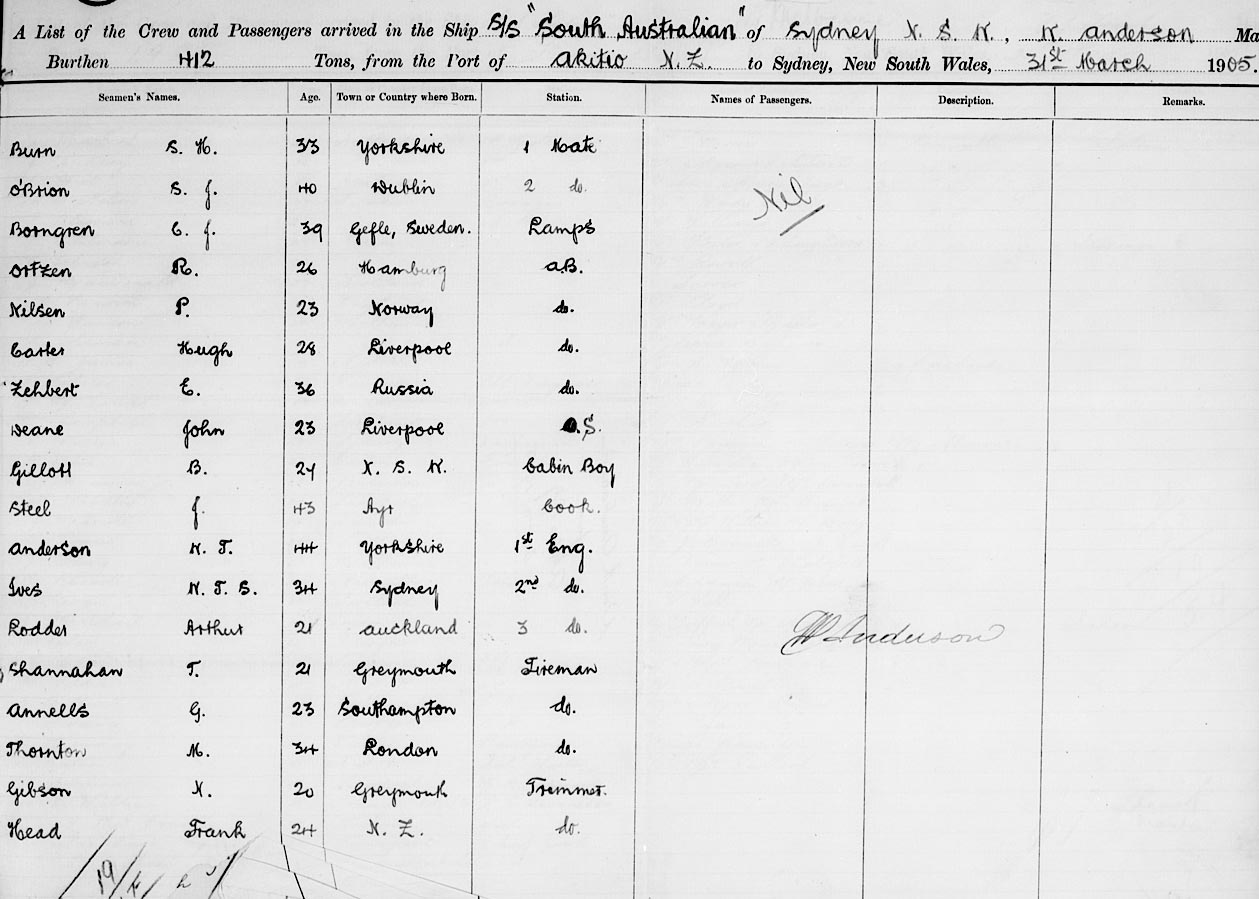 A List of the Crew and Passengers arrived in the Ship S/S "South Australian" of Sydney N. S. W., W. Anderson Ma
Burthen 412 Tons, from the Port of Akitio N.Z. to Sydney, New South Wales, 31st March 1905.
Seamen's Names. Age. Town or Country where Born. Station. Names of Passengers. Description. Remarks.
Burn S. H. 33 Yorkshire 1 Mate
O'Brion S. J. 40 Dublin 2 do. Nil
Borngren C. J. 39 Gefle, Sweden. Lamps
Ortzen R. 26 Hamburg A.B.
Nilsen P. 23 Norway do.
Carter Hugh 28 Liverpool do.
Zehbert E. 36 Russia do.
Deane John 23 Liverpool O.S.
Gillott B. 24 N. S. W. Cabin Boy
Steel J. 43 Ayr Cook.
Anderson W. T. 44 Yorkshire 1st Eng.
Ives W. T. S. 34 Sydney 2nd do.
Lodder Arthur 21 Auckland 3 do. Anderson
Shannahan T. 21 Greymouth Fireman
Annells G. 23 Southampton do.
Thornton M. 34 London do.
Gibson N. 20 Greymouth Trimmer.
Head Frank 24 N. Z. do.